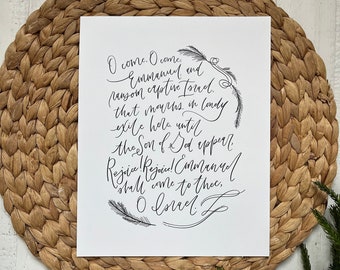 O come, O come,
Emmanuel and
ransom captive Israel
that mourns in lonely
exile here until
the Son of God appear
Rejoice! Rejoice! Emmanuel
shall come to thee,
O Israel